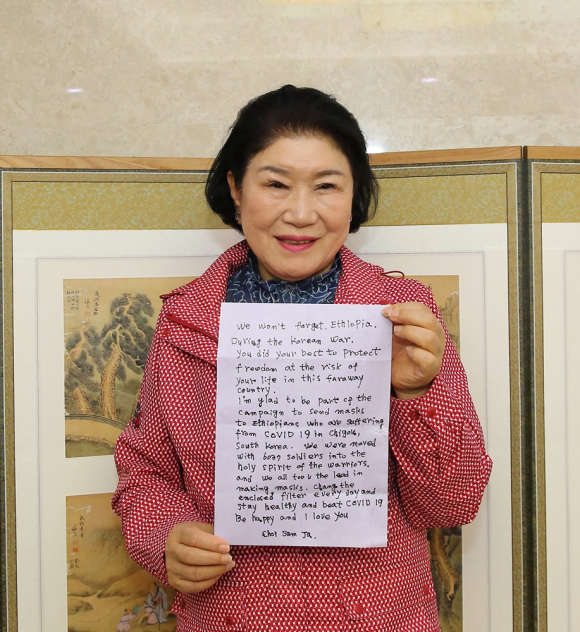 We won't forget, Ethiopia.
During the Korean War,
you did your best to protect
freedom at the risk of
your life in this faraway
country.
I'm glad to be part of the
campaign to send masks
to Ethiopians who are suffering
from COVID 19 in Chigok,
South Korea. We were moved
with 6037 soldiers into the
holy spirit of the warriors,
and we all took the lead in
making masks. Change the
enclosed filter every day and
stay healthy and beat COVID 19
Be happy and I love you
Choi Sam Ja.